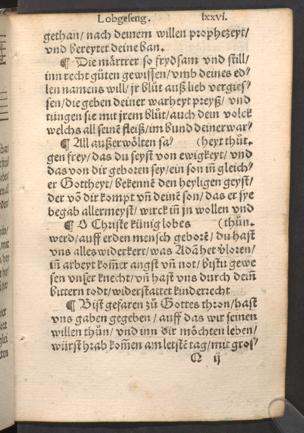 Lobgeseng. lxxvi.
gethan/ nach deinem willen prophezeyt/
vnd bereytet deine ban.
¶ Die märtrer so frydsam vnd still/
inn recht gůten gewissen/ vmb deines ed/
len namens will/ jr blůt auß lieb vergies/
sen/ die geben deiner warheyt preyß/ vnd
tüngen sie mit jrem blůt/ auch dein volck
welchs all seinē fleiß/ im bund deiner war/
¶ All außerwölten sa/ (heyt thůt.
gen frey/ das du seyst von ewigkeyt/ vnd
das von dir geboren sey/ ein son in gleich/
er Gottheyt/ bekennē den heyligen geyst/
der vō dir kompt vn̄ deinē son/ das er sye
begab allermeyst/ wirck in jn wollen vnd
¶ O Christe künig lobes (thůn.
werd/ auff erden mensch geborē/ du hast
vns alles widerkert/ was Adā het vloren/
in arbeyt kom̄er angst vn̄ not/ bistu gewe
sen vnser knecht/ vn̄ hast vns durch dein̄
bittern todt/ widerstattet kinderrecht
¶ Bist gefaren zů Gottes thron/ hast
vns gaben gegeben/ auff das wir seinen
willen thůn/ vnd inn dir möchten leben/
würst hrab kom̄en am letstē tag/ mit gros/
Q ij